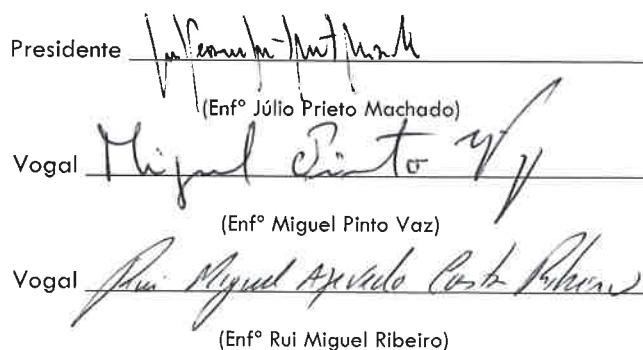 Presidente
(Enfº Júlio Prieto Machado)
Vogal Miguel Pinto Vaz
(Enfº Miguel Pinto Vaz)
Vogal Rui Miguel Azevedo Costa Ribeiro
(Enfº Rui Miguel Ribeiro)